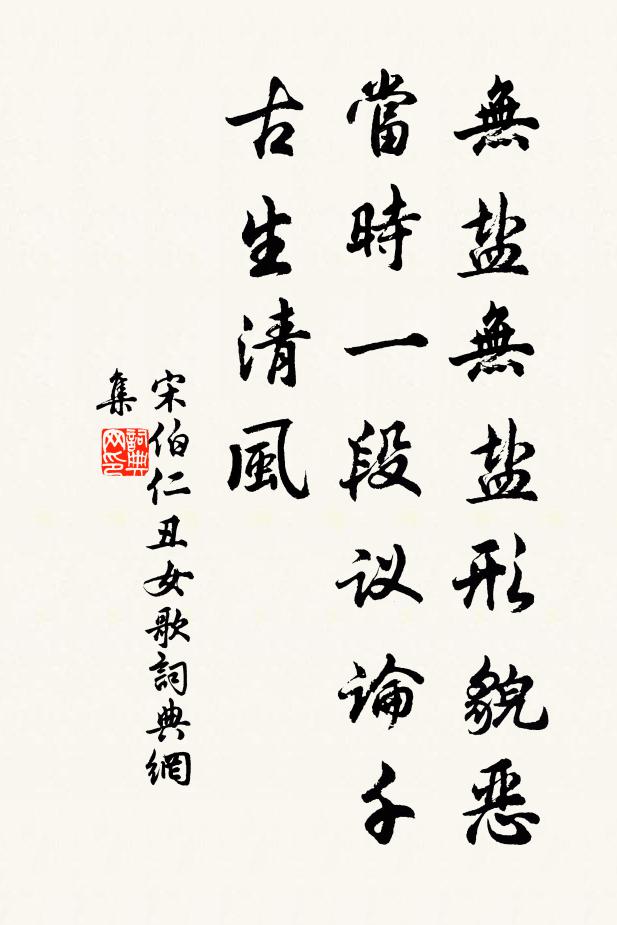 無盐無盐形貌恶
當時一段议論千
古生清風
宋伯仁丑女歌詞典網
集
詞典网印